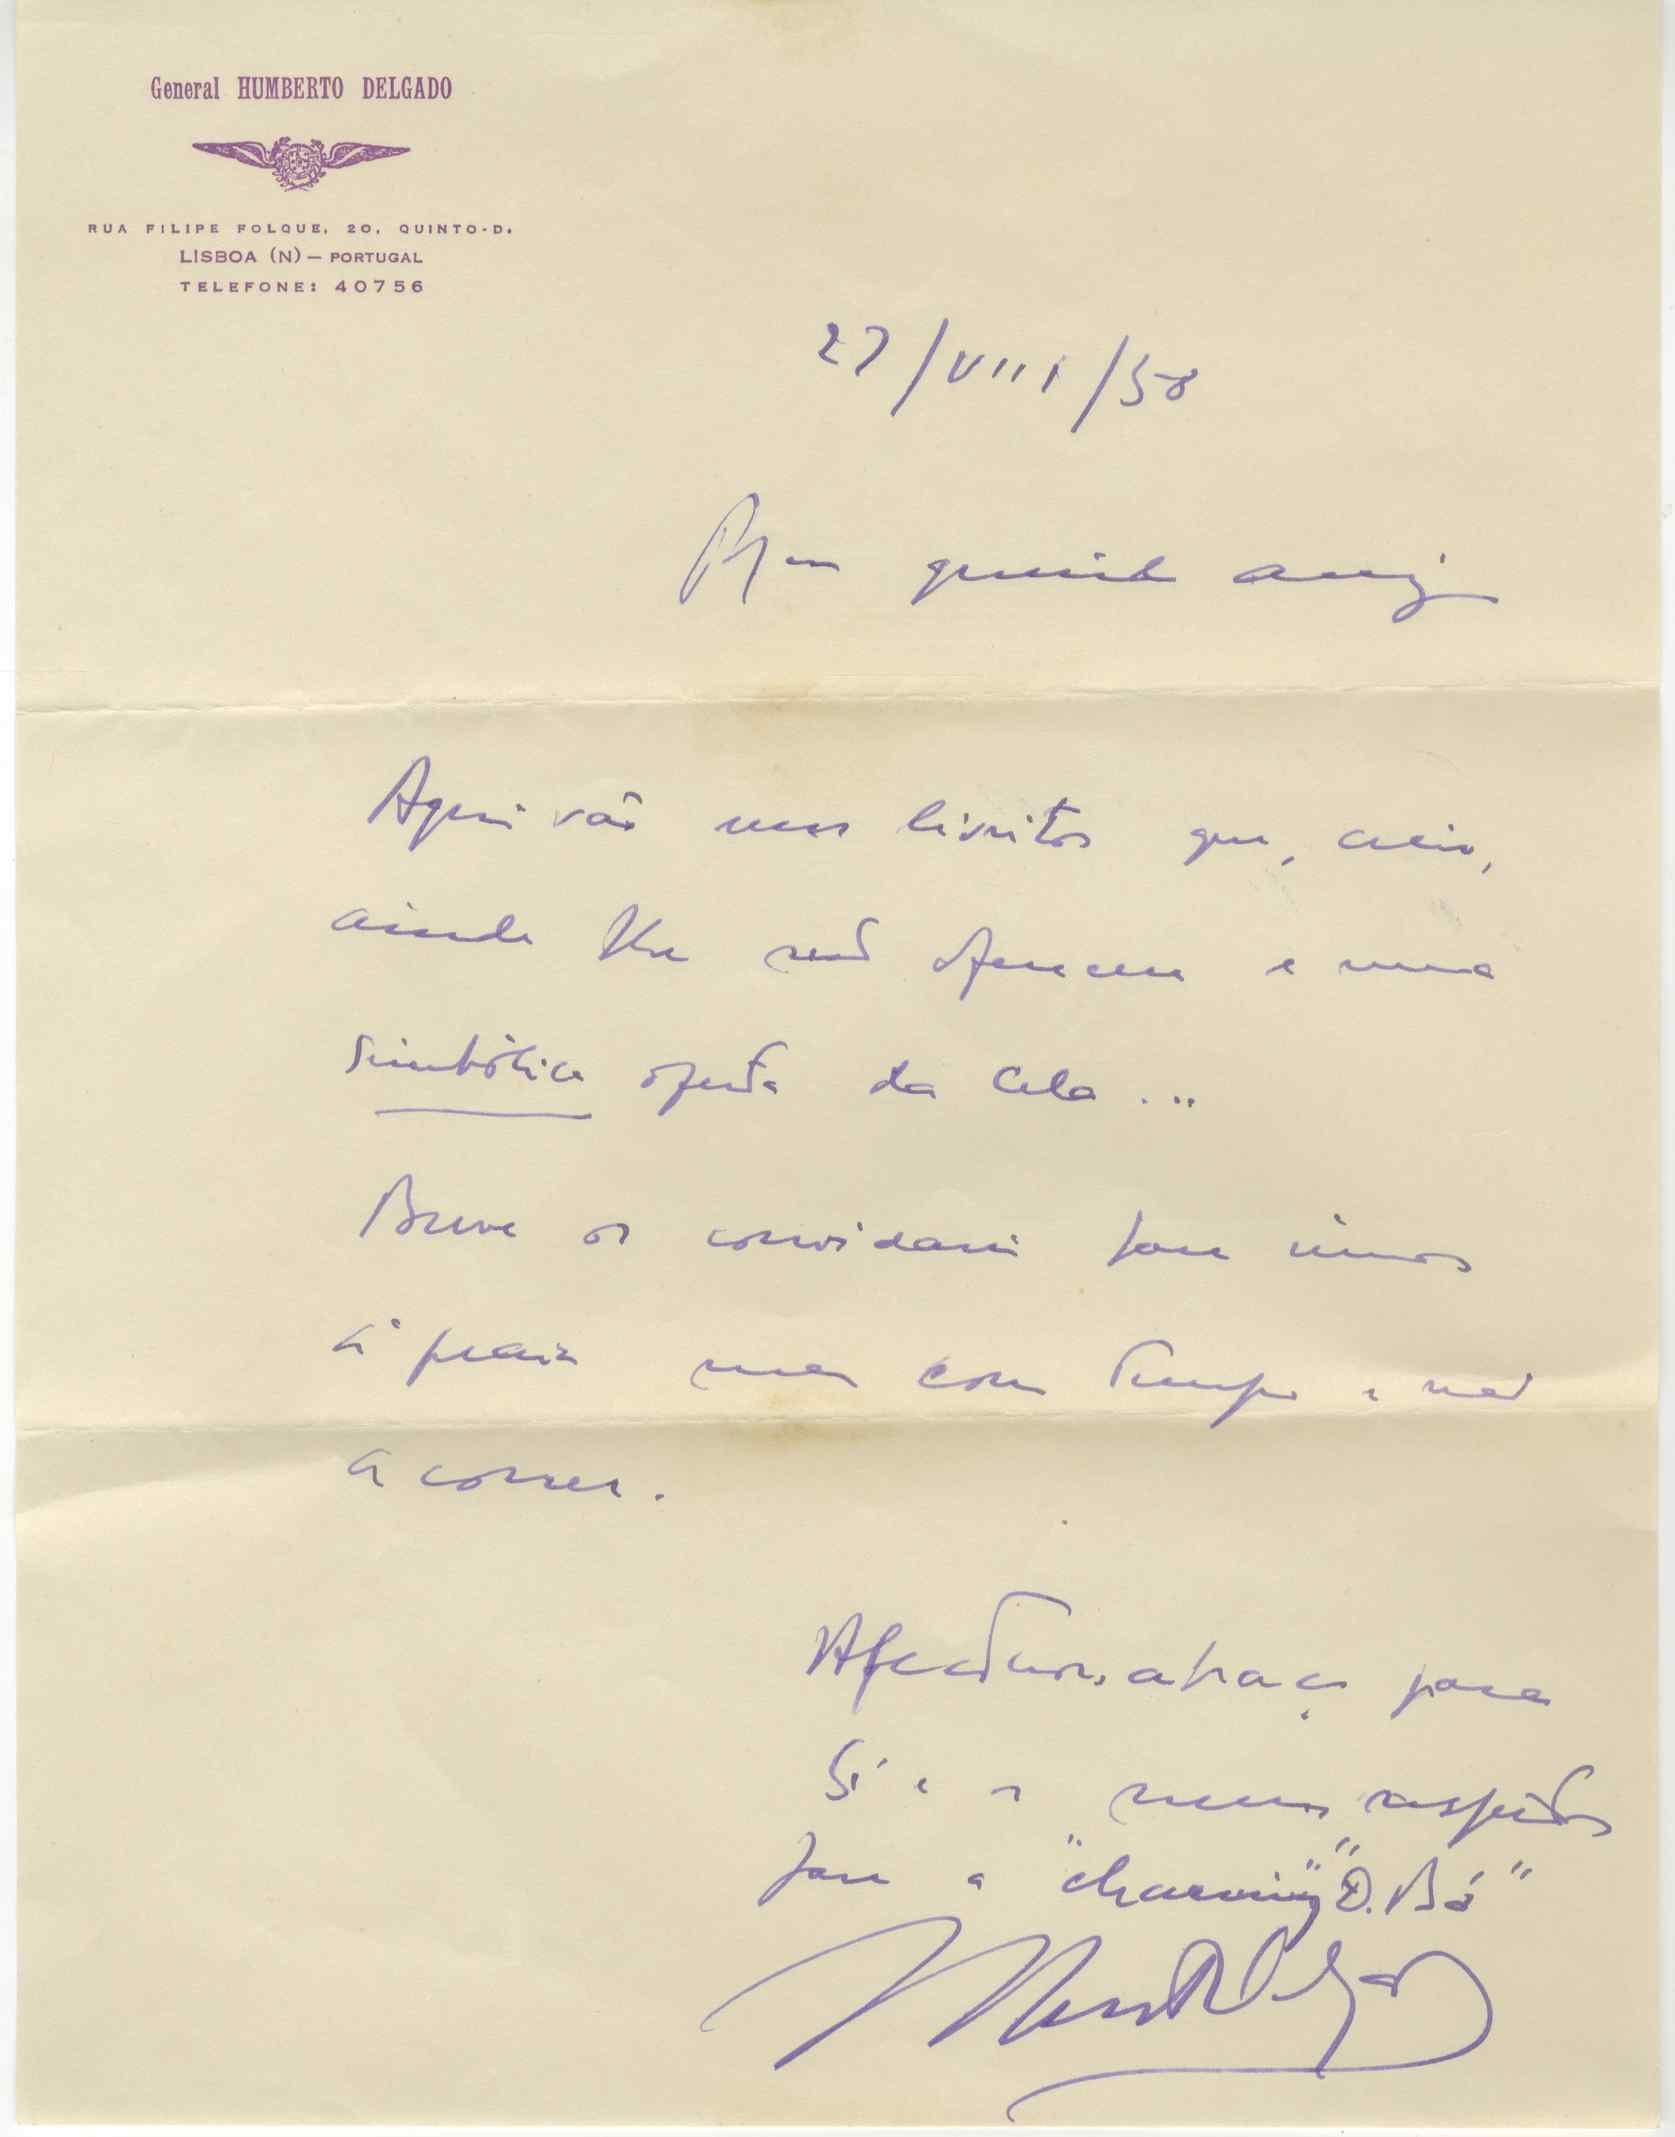 General HUMBERTO DELGADO
RUA FILIPE FOLQUE, 20, QUINTO-D.
LISBOA (N) — PORTUGAL
TELEFONE: 40756
27/VIII/58
querido amigo
Aqui vão uns livritos que, creio,
ainda lhe não ofereceu e uma
simbólica oferta da Cela...
Breve os convidarei para irmos
à praia mas com tempo e não
a correr.
Afectuoso abraço para
Si e os meus respeitos
para a "charming" "D. Bá"
Humberto Delgado